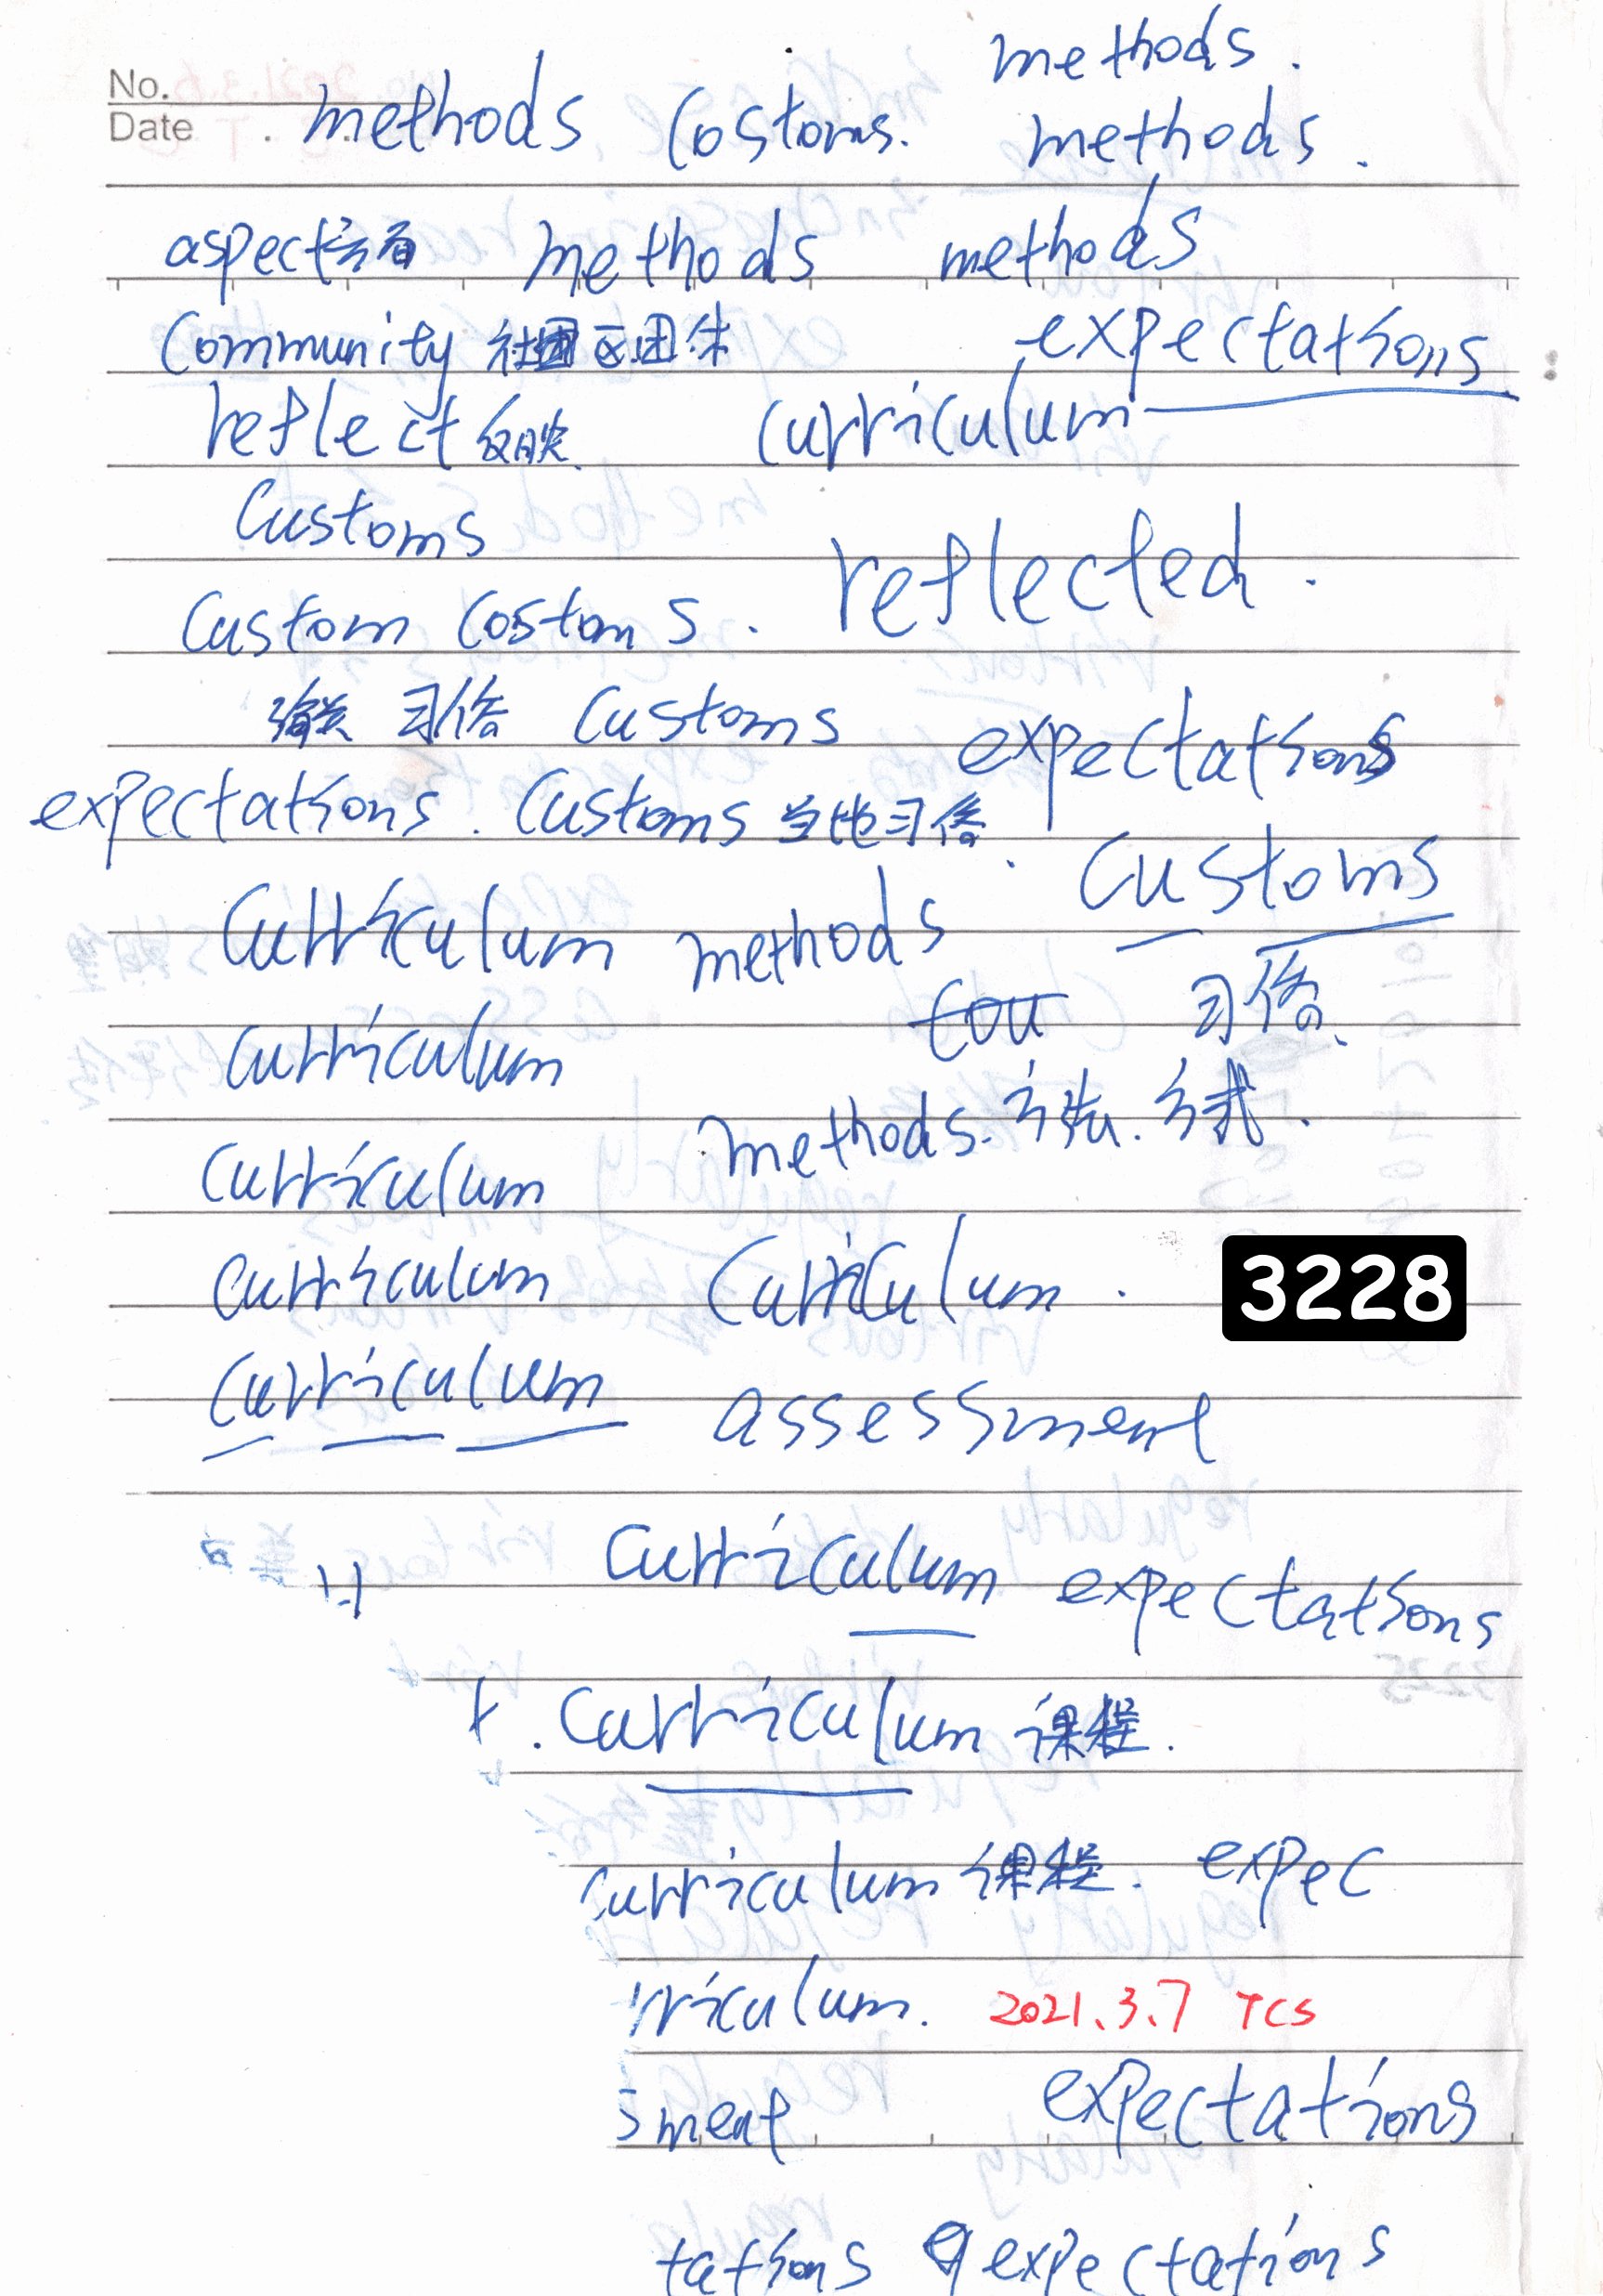 methods.
No.
Date . methods Costoms. methods.
aspect方面 methods methods
Community 社区团体 expectations
reflect反映. Curriculum
Customs
reflected.
Custom Costoms.
习俗 Customs expectations
expectations. Customs 当地习俗.
Customs
Curriculum methods
cou 习俗.
Curriculum
methods.方法.方式.
Curriculum
Curriculum Curriculum. 3228
Curriculum assessment
Curriculum expectations
t. Curriculum 课程.
Curriculum 课程. expec
rriculum. 2021.3.7 TCS
sment expectations
tations expectations